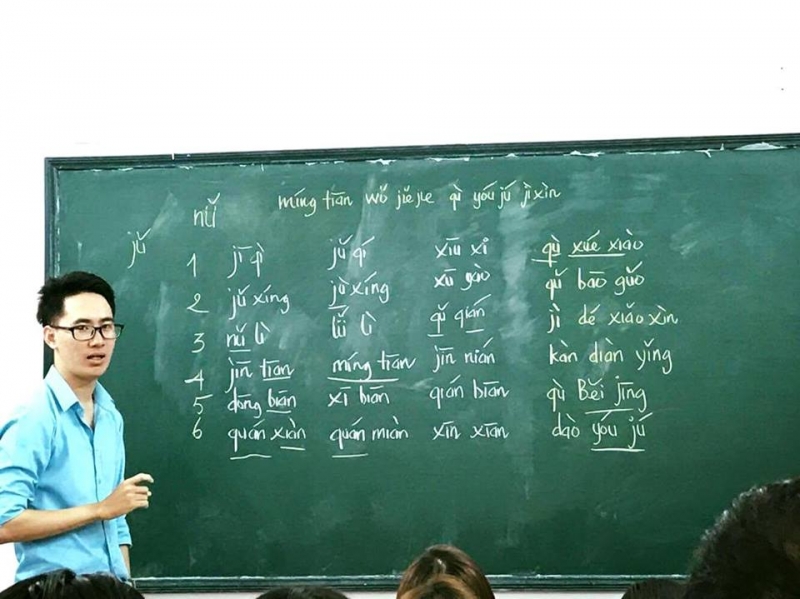 míng tiān wǒ jiějie qù yóu jú jì xìn
nǚ
jǔ
1 jī qì jǔ qí xiū xi qù xué xiào
2 jǔ xíng jù xíng xū yào qǔ bāo guǒ
3 nǔ lì lǜ lì qǔ qián jì dé xiǎo xìn
4 jīn tiān míng tiān jīn nián kàn diàn yǐng
5 dōng biān xī biān qián biān qù Běi jīng
6 quán xiàn quán miàn xīn xiān dào yóu jú